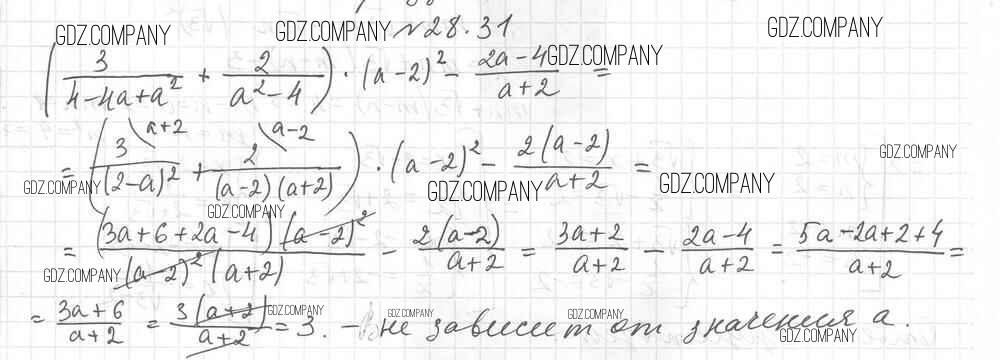 GDZ.COMPANY GDZ.COMPANY №28.31 GDZ.COMPANY
(3/(4-4a+a²) + 2/(a²-4)) · (a-2)² - (2a-4)/(a+2) = GDZ.COMPANY
= (3/(2-a)² \a+2 + 2/((a-2)(a+2)) \a-2) · (a-2)² - 2(a-2)/(a+2) = GDZ.COMPANY
GDZ.COMPANY GDZ.COMPANY GDZ.COMPANY
GDZ.COMPANY
= (3a+6+2a-4)(a-2)²/((a-2)²(a+2)) - 2(a-2)/(a+2) = (3a+2)/(a+2) - (2a-4)/(a+2) = (5a-2a+2+4)/(a+2) =
GDZ.COMPANY
= (3a+6)/(a+2) = 3(a+2)/(a+2) = 3. - не зависит от значения a.
GDZ.COMPANY GDZ.COMPANY GDZ.COMPANY GDZ.COMPANY